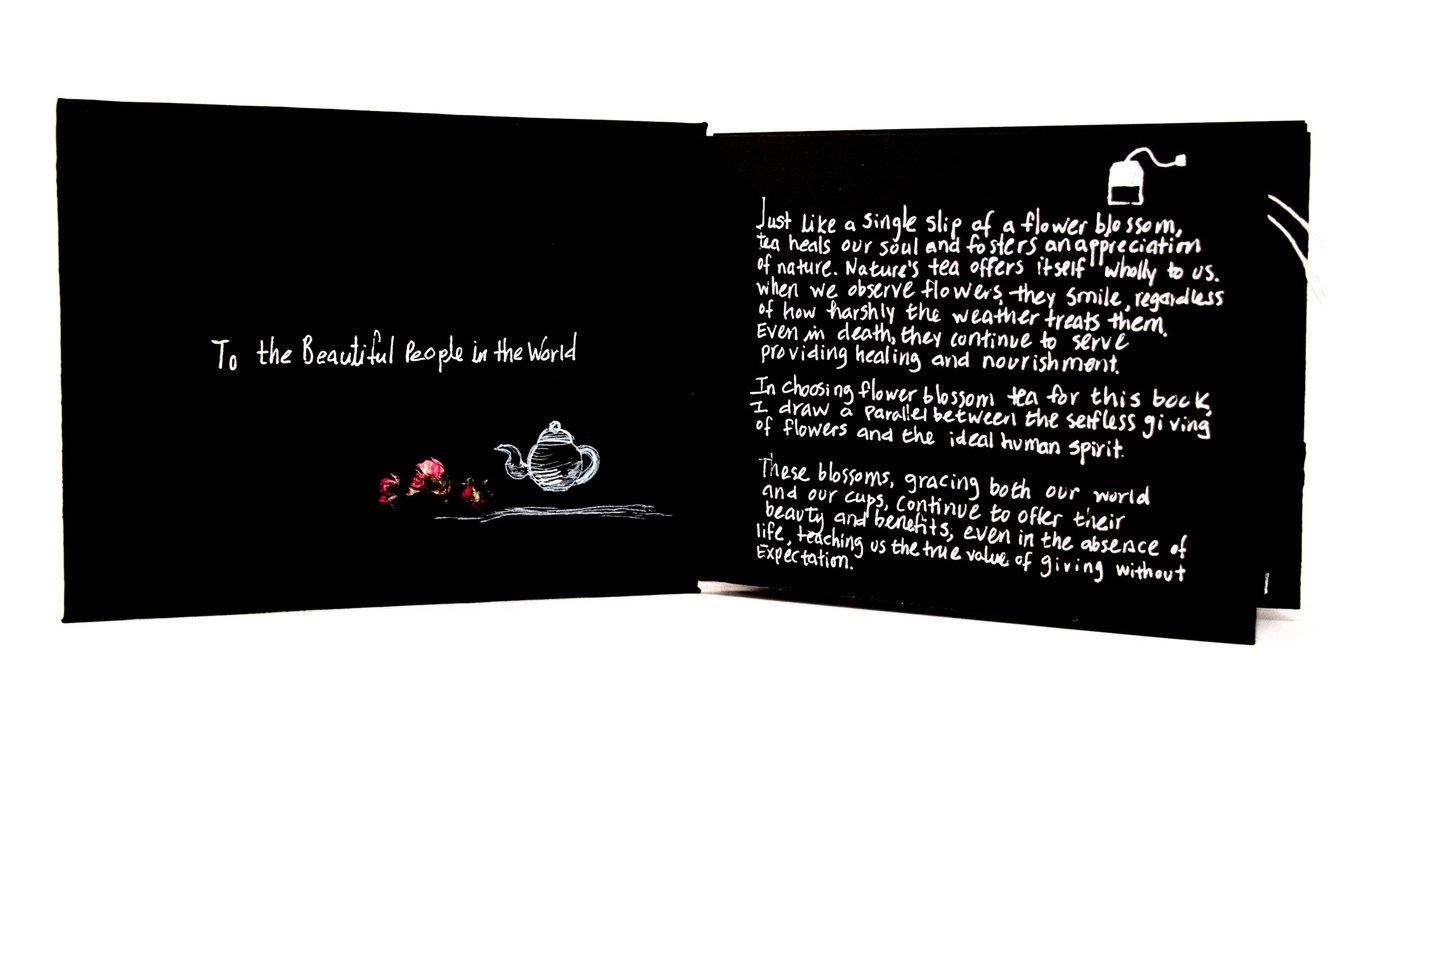 To the Beautiful People in the World
Just like a single slip of a flower blossom,
tea heals our soul and fosters an appreciation
of nature. Nature's tea offers itself wholly to us.
when we observe flowers, they smile, regardless
of how harshly the weather treats them.
Even in death, they continue to serve
providing healing and nourishment.
In choosing flower blossom tea for this book,
I draw a parallel between the selfless giving
of flowers and the ideal human spirit.
These blossoms, gracing both our world
and our cups, continue to offer their
beauty and benefits, even in the absence of
life, teaching us the true value of giving without
Expectation.